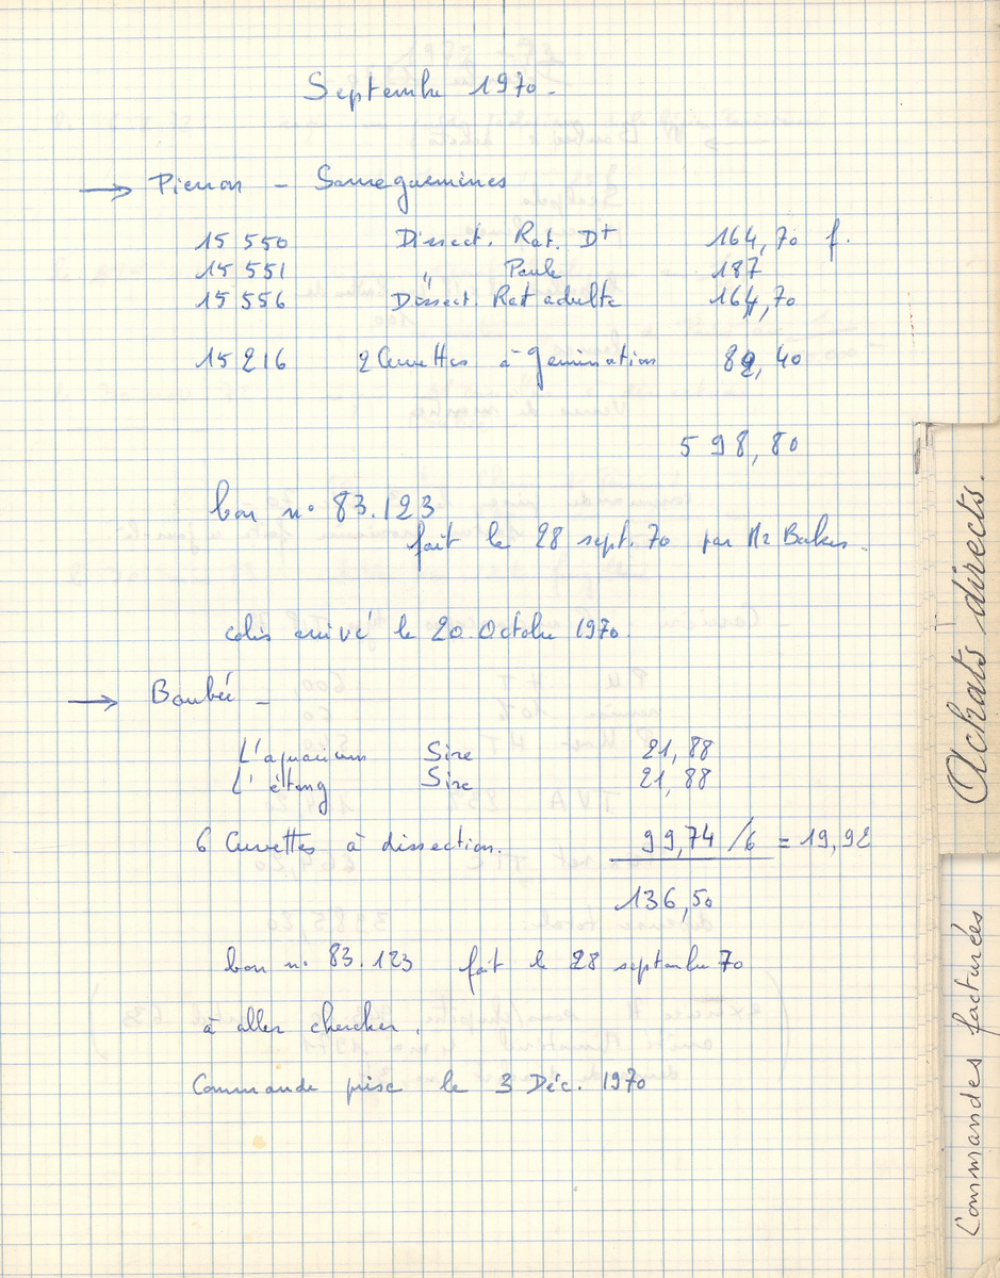 Septembre 1970.
→ Pierron - Sarreguemines
15 550 Dissect. Rat. Dt 164,70 f.
15 551 " Poule 187
15 556 Dissect. Rat adulte 164,70
15 216 2 Cuvettes à germination 82,40
598,80
bon n° 83.123
fait le 28 sept. 70 par Mr
colis arrivé le 20 Octobre 1970.
→ Boubée -
L'aquarium Sire 21,88
L'étang Sire 21,88
6 Cuvettes à dissection. 99,74 /6 = 19,92
136,50
bon n° 83.123 fait le 28 septembre 70
à aller chercher.
Commande prise le 3 Déc. 1970
Achats directs.
Commandes facturées